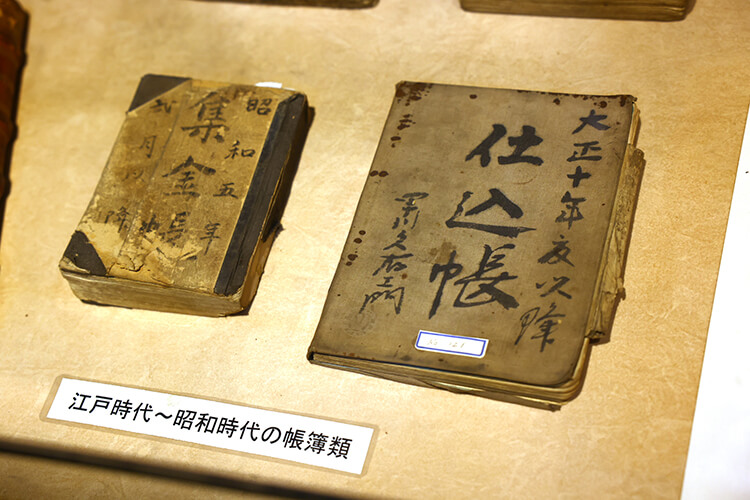 昭和五年
集金帳
弐月以降
大正十年度以降
仕込帳
江戸時代～昭和時代の帳簿類